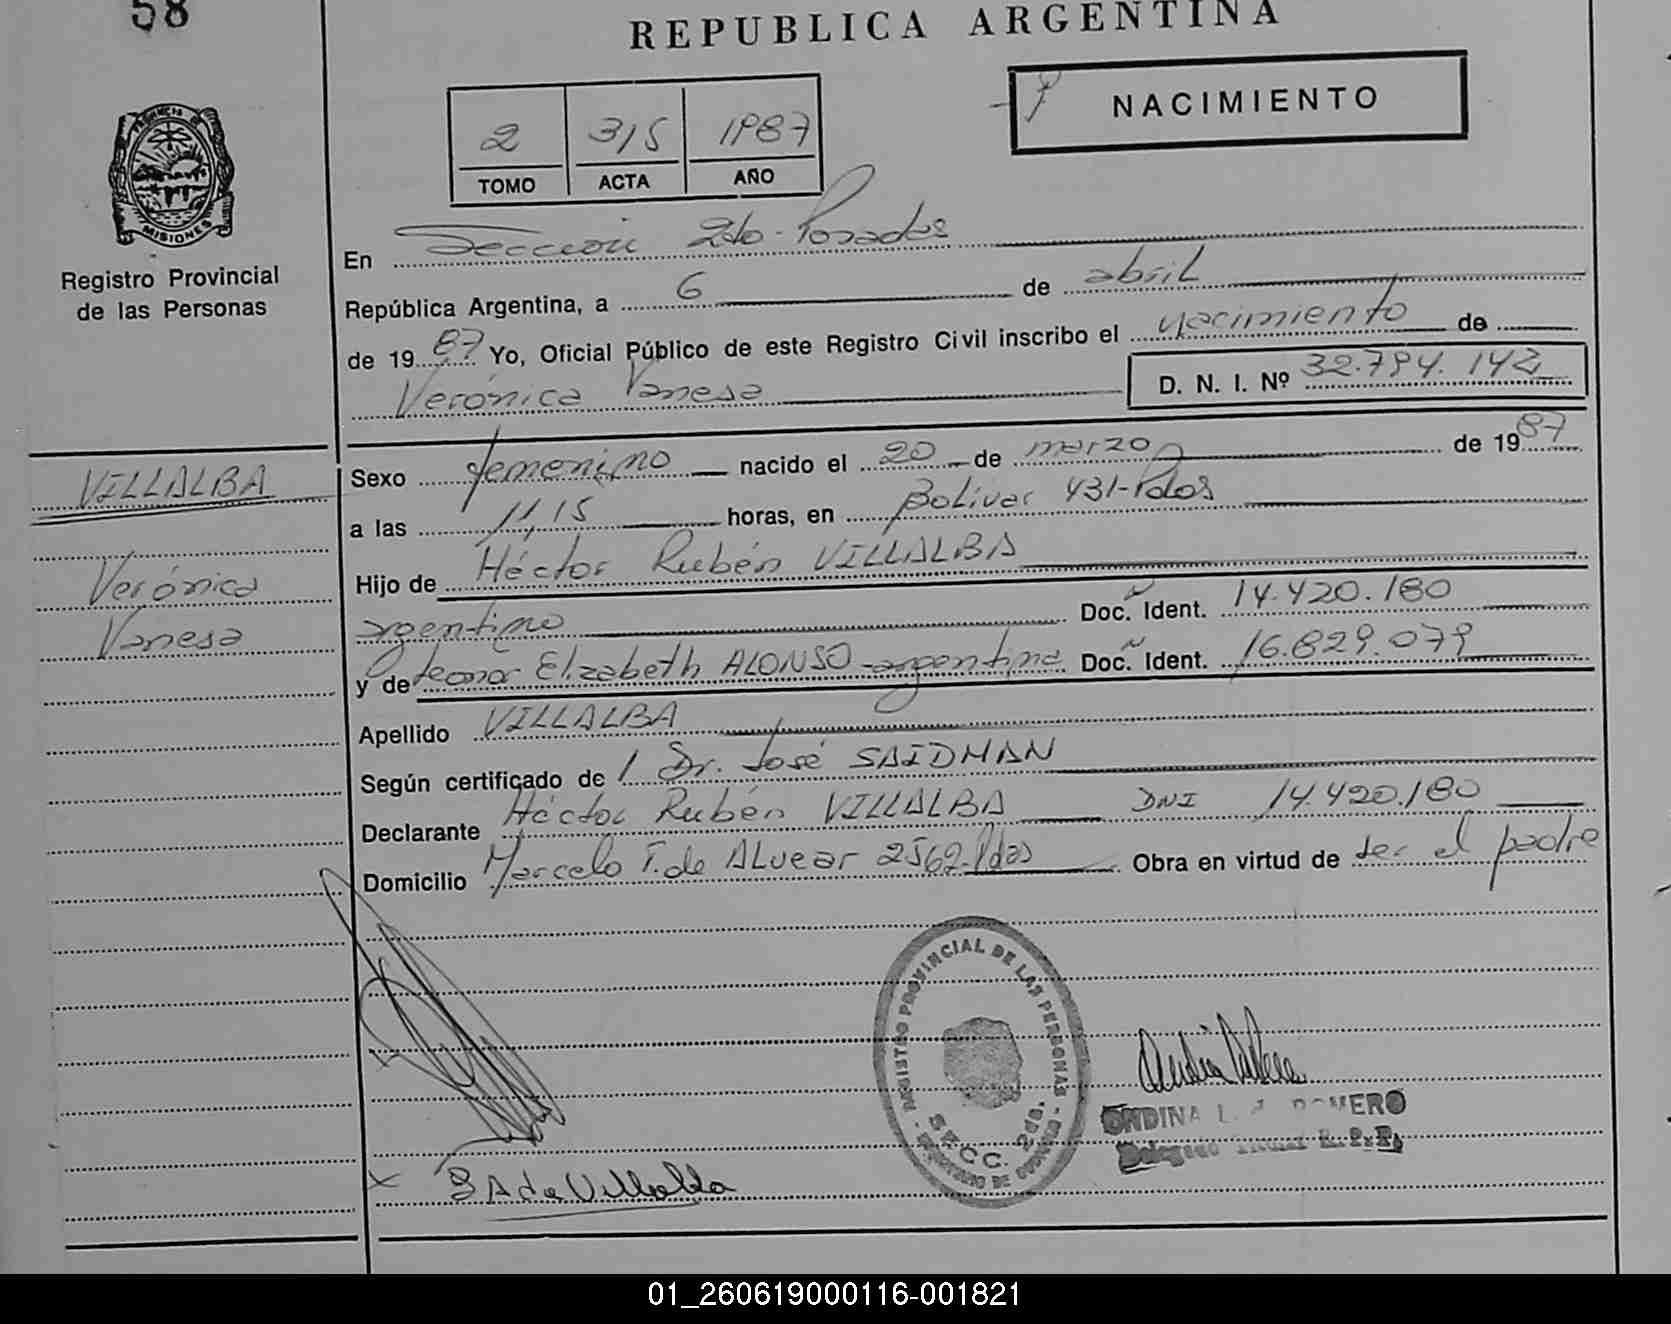 58
REPUBLICA ARGENTINA
2 315 1987
TOMO ACTA AÑO
NACIMIENTO
PROVINCIA DE
MISIONES
Registro Provincial
de las Personas
En Sección 2da-Posadas
República Argentina, a 6 de abril
de 1987 Yo, Oficial Público de este Registro Civil inscribo el nacimiento de
Verónica Vanesa D. N. I. Nº 32.784.142
VILLALBA
Verónica
Vanesa
Sexo femenino nacido el 20 de marzo de 1987
a las 11,15 horas, en Bolívar 431-Pdas
Hijo de Héctor Rubén VILLALBA
argentino Doc. Ident. 14.420.180
y de Leonor Elizabeth ALONSO-argentina Doc. Ident. 16.829.079
Apellido VILLALBA
Según certificado de / Dr. José SAIDMAN
Declarante Héctor Rubén VILLALBA DNI 14.420.180
Domicilio Marcelo T. de ALvear 2562-Pdas Obra en virtud de ser el padre
REGISTRO PROVINCIAL DE LAS PERSONAS
SECC. 2da.
ONDINA L. ROMERO
Delegado Titular R. P. P.
x
de Villalba
01_260619000116-001821